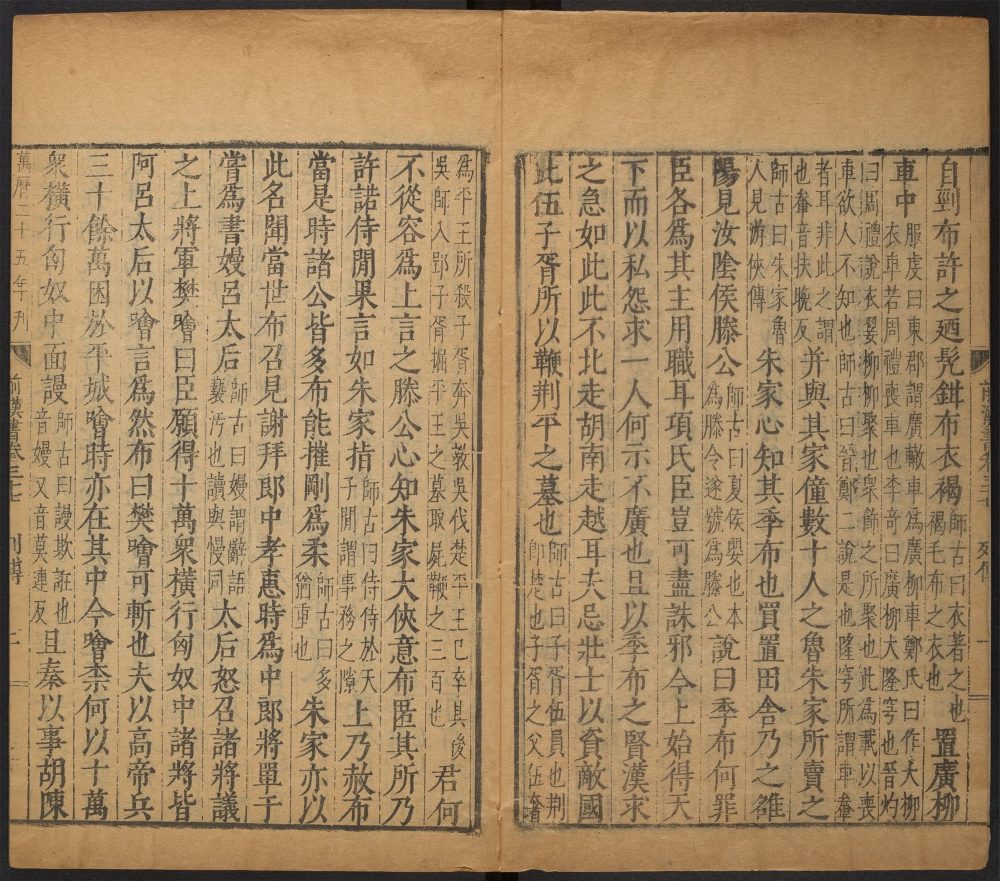 前漢書卷三七 列傳 一
自剄布許之廼髡鉗布衣褐師古曰衣著之也褐毛布之衣也置廣柳
車中服虔曰東郡謂廣轍車爲廣柳車鄭氏曰作大柳衣車若周禮喪車也李奇曰廣柳大隆穹也晉灼
曰周禮說衣翣柳柳聚也衆飾之所聚也此爲載以喪車欲人不知也師古曰晉鄭二說是也隆穹所謂車軬
者耳非此之謂也軬音扶晚反并與其家僮數十人之魯朱家所賣之
師古曰朱家魯人見游俠傳朱家心知其季布也買置田舍乃之雒
陽見汝陰侯滕公師古曰夏侯嬰也本爲滕令遂號爲滕公說曰季布何罪
臣各爲其主用職耳項氏臣豈可盡誅邪今上始得天
下而以私怨求一人何示不廣也且以季布之賢漢求
之急如此此不北走胡南走越耳夫忌壯士以資敵國
此伍子胥所以鞭荆平之墓也師古曰子胥伍員也荆即楚也子胥之父伍奢
爲平王所殺子胥奔吳敎吳伐楚平王已卒其後吳師入郢子胥掘平王之墓取屍鞭之三百也君何
不從容爲上言之滕公心知朱家大俠意布匿其所乃
許諾侍閒果言如朱家指師古曰侍侍於天子閒謂事務之隙上乃赦布
當是時諸公皆多布能摧剛爲柔師古曰多猶重也朱家亦以
此名聞當世布召見謝拜郎中孝惠時爲中郎將單于
嘗爲書嫚呂太后師古曰嫚謂辭語褻汚也讀與慢同太后怒召諸將議
之上將軍樊噲曰臣願得十萬衆橫行匈奴中諸將皆
阿呂太后以噲言爲然布曰樊噲可斬也夫以高帝兵
三十餘萬困於平城噲時亦在其中今噲柰何以十萬
衆橫行匈奴中面謾師古曰謾欺誑也音嫚又音莫連反且秦以事胡陳
萬曆二十五年刊 前漢書卷三七 列傳 二